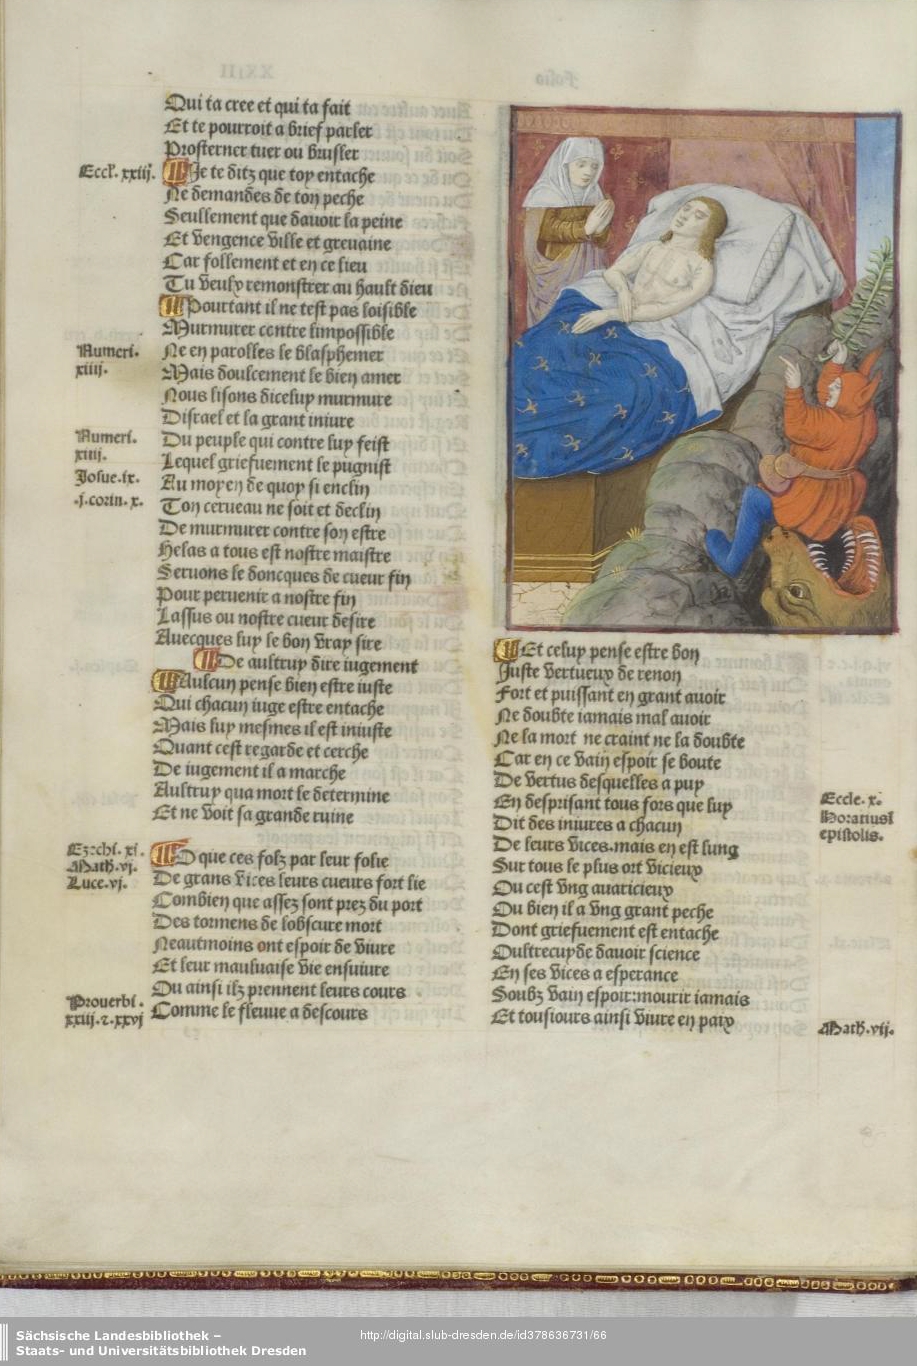 Qui ta cree et qui ta fait
Et te pourroit a brief parler
Prosterner tuer ou brusler
Eccl'. xxiij.
Je te ditz que toy entache
Ne demandes de ton peche
Seullement que davoir la peine
Et vengence ville et grevaine
Car follement et en ce lieu
Tu veulx remonstrer au hault dieu
Pourtant il ne test pas loisible
Murmurer contre limpossible
Numeri.
xiiij.
Ne en parolles le blasphemer
Mais doulcement le bien amer
Nous lisons diceluy murmure
Disrael et la grant iniure
Numeri.
xiij.
Du peuple qui contre luy feist
Lequel griefuement le pugnist
Josue.ix.
Au moyen de quoy si enclin
.j.corin.x.
Ton cerueau ne soit et declin
De murmurer contre son estre
Helas a tous est nostre maistre
Seruons le doncques de cueur fin
Pour peruenir a nostre fin
Lassus ou nostre cueur desire
Auecques luy le bon vray sire
De aultruy dire iugement
Aulcun pense bien estre iuste
Qui chacun iuge estre entache
Mais luy mesmes il est iniuste
Quant cest regarde et cerche
De iugement il a marche
Aultruy qua mort le determine
Et ne voit sa grande ruine
Ezechi. xi.
Math.vj.
Luce.vj.
O que ces folz par leur folie
De grans vices leurs cueurs fort lie
Combien que assez sont prez du port
Des tormens de lobscure mort
Neautmoins ont espoir de viure
Et leur mauluaise vie ensuiure
Ou ainsi ilz prennent leurs cours
Prouerbi.
xxiij.z.xxvj
Comme le fleuue a descours
Et celuy pense estre bon
Juste vertueux de renon
Fort et puissant en grant avoir
Ne doubte iamais mal avoir
Ne la mort ne craint ne la doubte
Car en ce vain espoir se boute
De vertus desquelles a puy
En desprisant tous fors que luy
Eccle. x.
Horatius
epistolis.
Dit des iniures a chacun
De leurs vices.mais en est lung
Sur tous le plus ort vicieux
Ou cest vng auaricieux
Ou bien il a vng grant peche
Dont griefuement est entache
Oultrecuyde davoir science
En ses vices a esperance
Soubz vain espoir:mourir iamais
Et tousiours ainsi viure en paix
Math.vij.
Sächsische Landesbibliothek –
Staats- und Universitätsbibliothek Dresden
http://digital.slub-dresden.de/id378636731/66